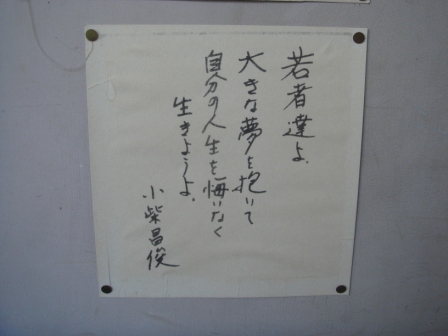 若者達よ、
大きな夢を抱いて
自分の人生を悔いなく
生きようよ。
小柴昌俊